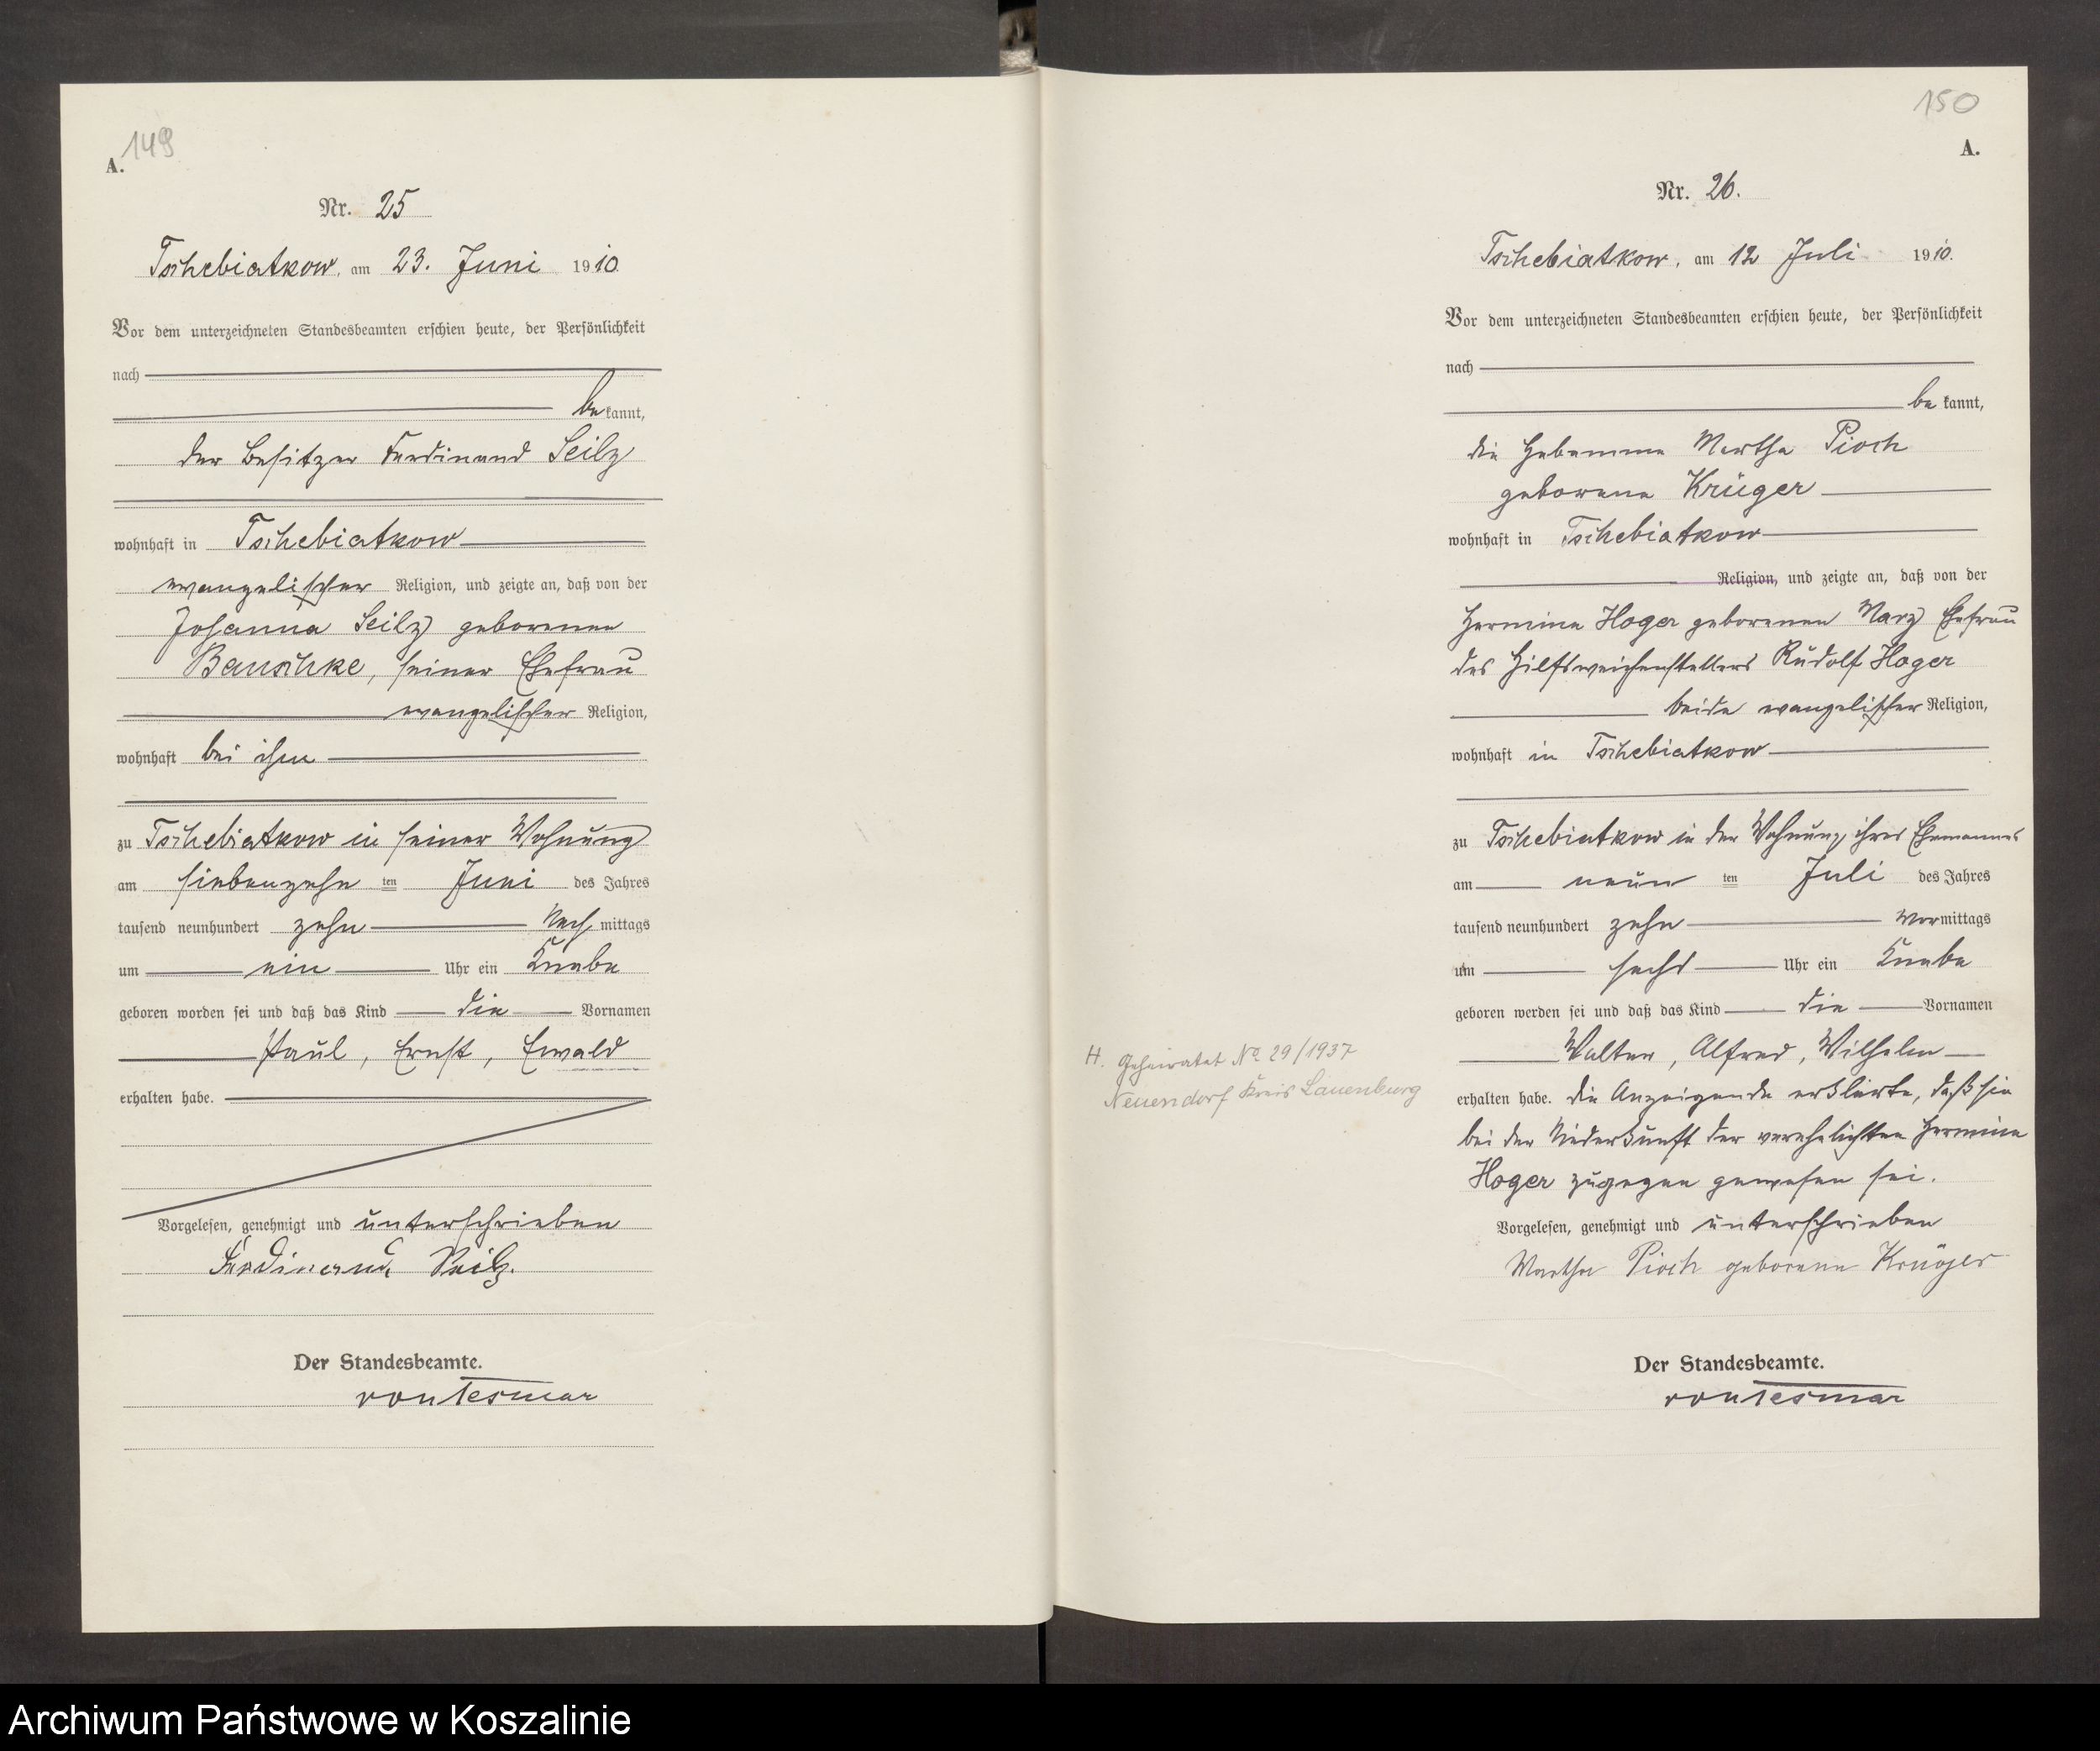 149
A.
Nr. 25
Tschebiatkow, am 23. Juni 1910
Vor dem unterzeichneten Standesbeamten erschien heute, der Persönlichkeit
nach
bekannt,
der Besitzer Ferdinand Seilz
wohnhaft in Tschebiatkow
evangelischer Religion, und zeigte an, daß von der
Johanna Seilz geborenen
Bauschke, seiner Ehefrau
evangelischer Religion,
wohnhaft bei ihm
zu Tschebiatkow in seiner Wohnung
am siebenzehn ten Juni des Jahres
tausend neunhundert zehn Nachmittags
um ein Uhr ein Knabe
geboren worden sei und daß das Kind die Vornamen
Paul, Ernst, Ewald
erhalten habe.
Vorgelesen, genehmigt und unterschrieben
Ferdinand Seilz.
Der Standesbeamte.
von Tesmar
150
A.
Nr. 26.
Tschebiatkow, am 12 Juli 1910.
Vor dem unterzeichneten Standesbeamten erschien heute, der Persönlichkeit
nach
bekannt,
die Hebamme Martha Pioch
geborene Krüger
wohnhaft in Tschebiatkow
Religion, und zeigte an, daß von der
Hermine Hoger geborenen Marz Ehefrau
des Hilfsweichenstellers Rudolf Hoger
beide evangelischer Religion,
wohnhaft in Tschebiatkow
zu Tschebiatkow in der Wohnung ihres Ehemannes
am neun ten Juli des Jahres
tausend neunhundert zehn Vormittags
um sechs Uhr ein Knabe
geboren worden sei und daß das Kind die Vornamen
Walter, Alfred, Wilhelm
H. Geheiratet No 29/1937
Neuendorf Kreis Lauenburg
erhalten habe. die Anzeigende erklärte, daß sie
bei der Niederkunft der verehelichten Hermine
Hoger zugegen gewesen sei.
Vorgelesen, genehmigt und unterschrieben
Martha Pioch geborene Krüger
Der Standesbeamte.
von Tesmar
Archiwum Państwowe w Koszalinie